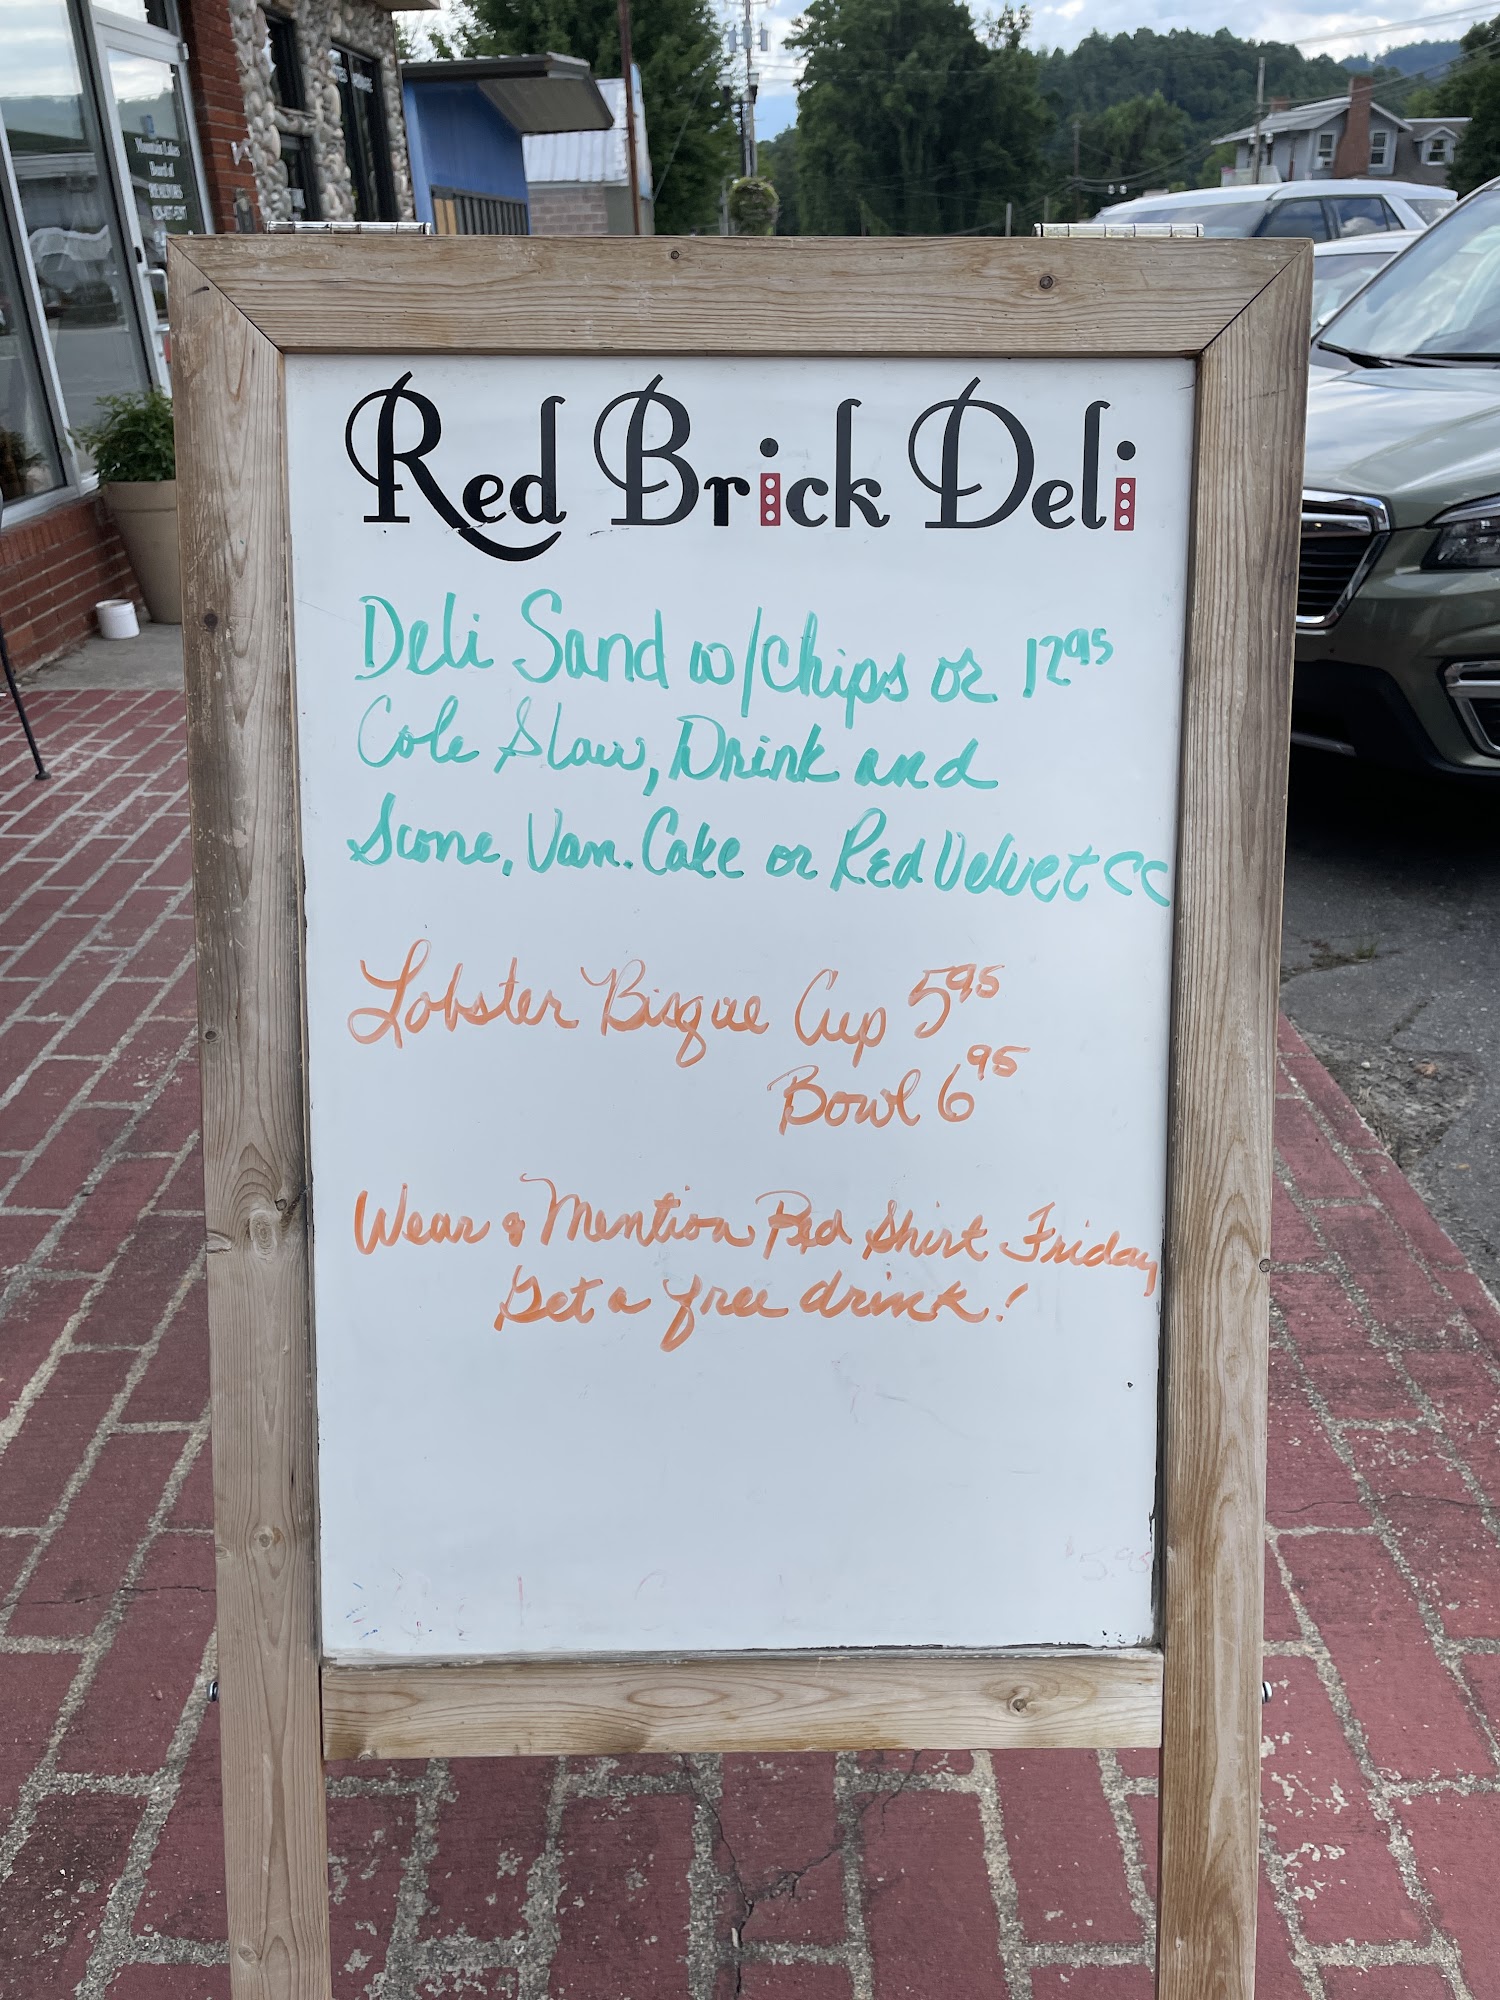 Mountain Lakes
Board of
REALTORS
Red Brick Deli
Deli Sand w/chips or 12 95
Cole Slaw, Drink and
Scone, Van. Cake or Red Velvet CC
Lobster Bisque Cup 5 95
Bowl 6 95
Wear & Mention Red Shirt Friday
Get a free drink!
5.95